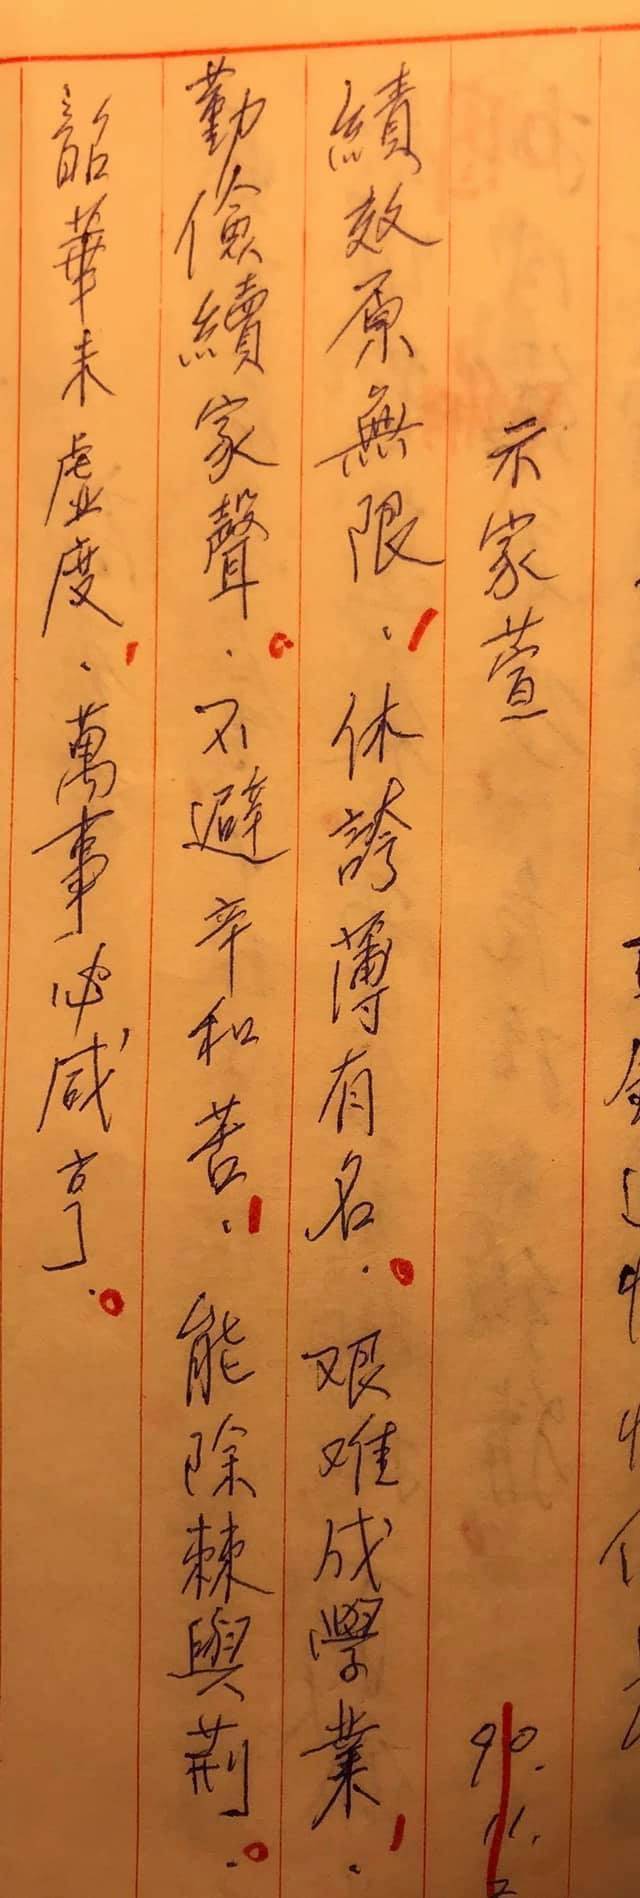 示家萱 90.11.2
績效原無限.休誇薄有名.艰难成學業.
勤儉續家聲.不避辛和苦.能除棘與荊.
韶華未虛度.萬事必咸亨.